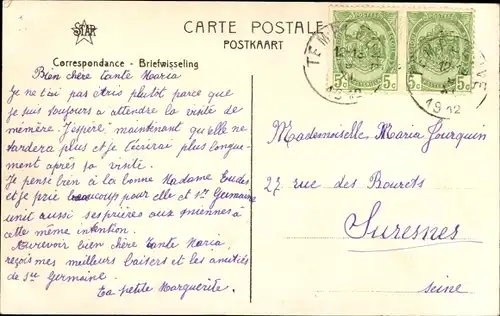 STAR
CARTE POSTALE
POSTKAART
Correspondance - Briefwisseling
Bien chère tante Maria
Je ne t'ai pas écris plutôt parce que
je suis toujours a attendre la visite de
mémère. J'espère maintenant qu'elle ne
tardera plus et je t'écrirai plus longue-
ment après sa visite.
Je pense bien à la bonne Madame Eudes
et je prie beaucoup pour elle et Sr Germaine
unit aussi ses prières aux miennes à
cette même intention.
Aurevoir bien chère tante Maria,
reçois mes meilleurs baisers et les amitiés
de Sr Germaine.
Ta petite Marguerite.
5c 5c
1912
1912
Mademoiselle Maria Jourquin
27 rue des Bourets
Suresnes
Seine